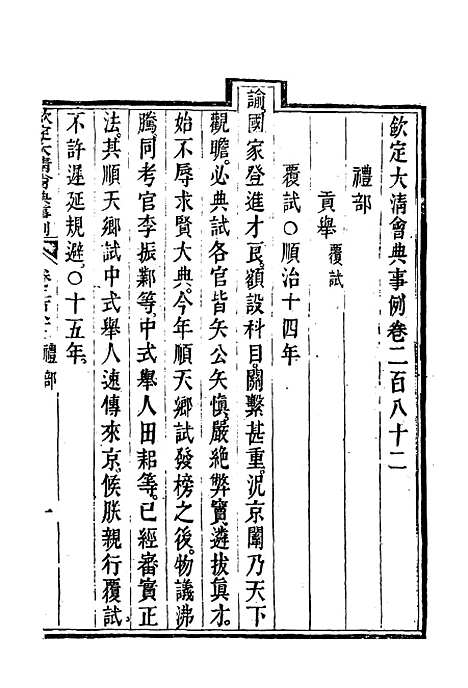 欽定大清會典事例卷二百八十二
禮部
貢舉覆試
覆試○順治十四年
諭國家登進才良額設科目關繫甚重況京闈乃天下
觀瞻必典試各官皆矢公矢愼嚴絶弊竇遴拔眞才
始不辱求賢大典今年順天鄉試發榜之後物議沸
騰同考官李振鄴等中式舉人田耜等已經審實正
法其順天鄉試中式舉人速傳來京候朕親行覆試
不許遲延規避○十五年
欽定大清會典事例
禮部
一